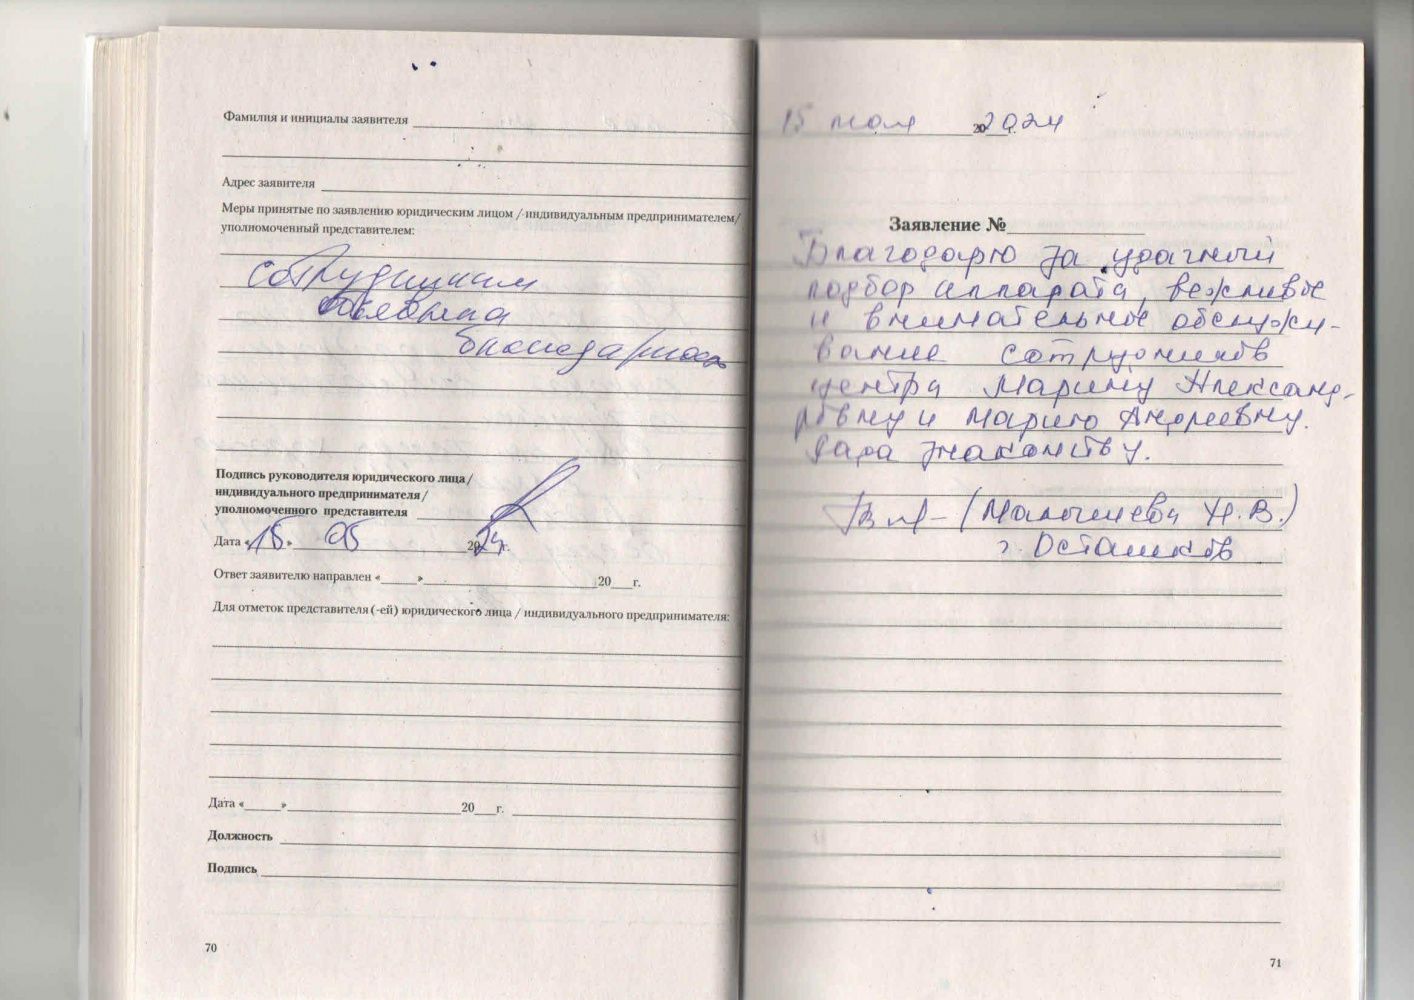 Фамилия и инициалы заявителя
Адрес заявителя
Меры принятые по заявлению юридическим лицом / индивидуальным предпринимателем/
уполномоченный представителем:
сотрудникам
объявлена
благодарность
Подпись руководителя юридического лица/
индивидуального предпринимателя/
уполномоченного представителя
Дата «15» 05 2024г.
Ответ заявителю направлен «____»____20__г.
Для отметок представителя (-ей) юридического лица / индивидуального предпринимателя:
Дата «____»____20__г.
Должность
Подпись
70
15 мая 2024
Заявление №
Благодарю за удачный
подбор аппарата, вежливое
и внимательное обслужи-
вание сотрудников
центра Марину Александ-
ровну и Марию Андреевну.
Рада знакомству.
(Малышева Н.В.)
г. Осташков
71